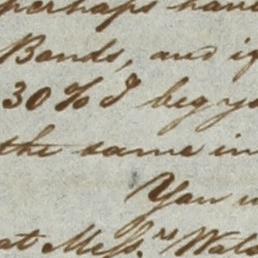 perhaps have
Bonds, and if
30% I beg yo
the same in
You w
at Messrs Wals